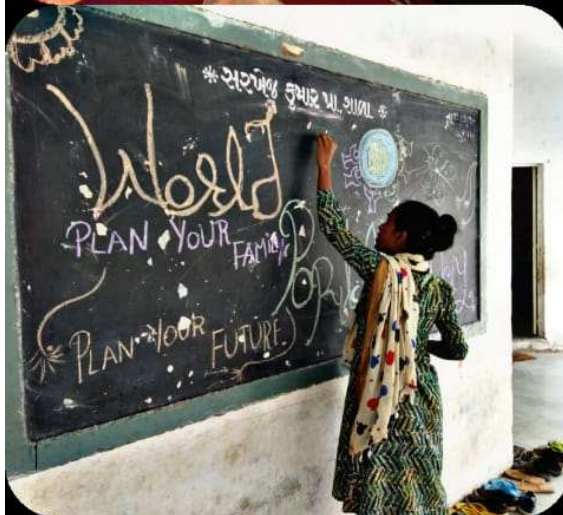 * સરખેજ કુમાર પ્રા. શાળા *
World
PLAN YOUR FAMILY
PLAN YOUR FUTURE